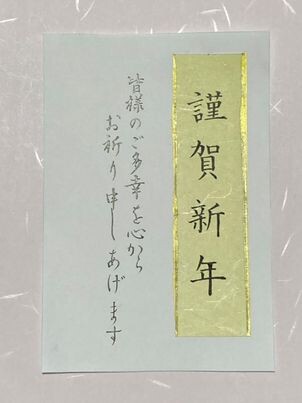 謹賀新年
皆様のご多幸を心から
お祈り申しあげます